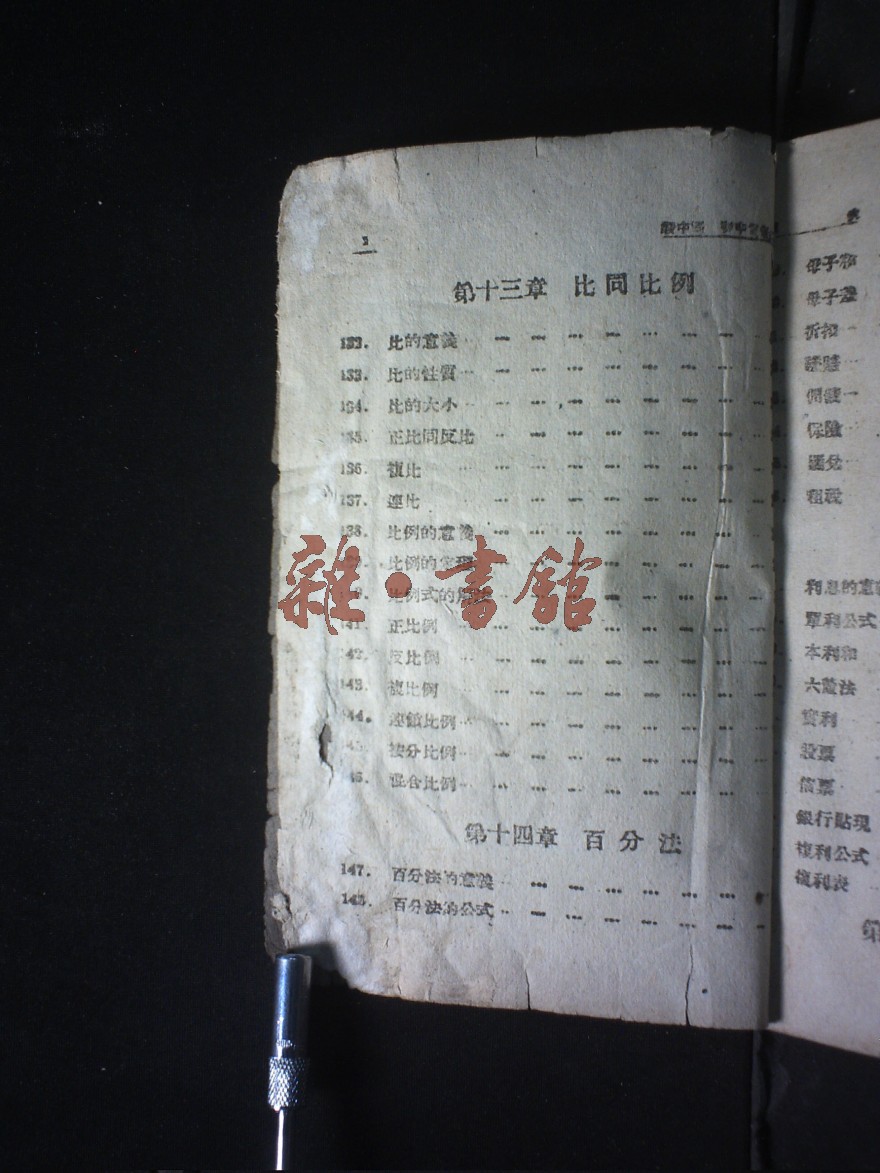 2
第十三章 比同比例
132. 比的意義
133. 比的性質
134. 比的大小
135. 正比同反比
136. 複比
137. 連比
138. 比例的意義
比例的
比例式的
141. 正比例
142. 反比例
143. 複比例
144. 連鎖比例
145. 按分比例
146. 混合比例
第十四章 百分法
147. 百分法的意義
148. 百分法的公式
雜·書館
母子和
母子差
折扣
賺賠
佣錢
保險
匯兌
租稅
利息的意
單利公式
本利和
六釐法
實利
股票
債票
銀行貼現
複利公式
複利表
第